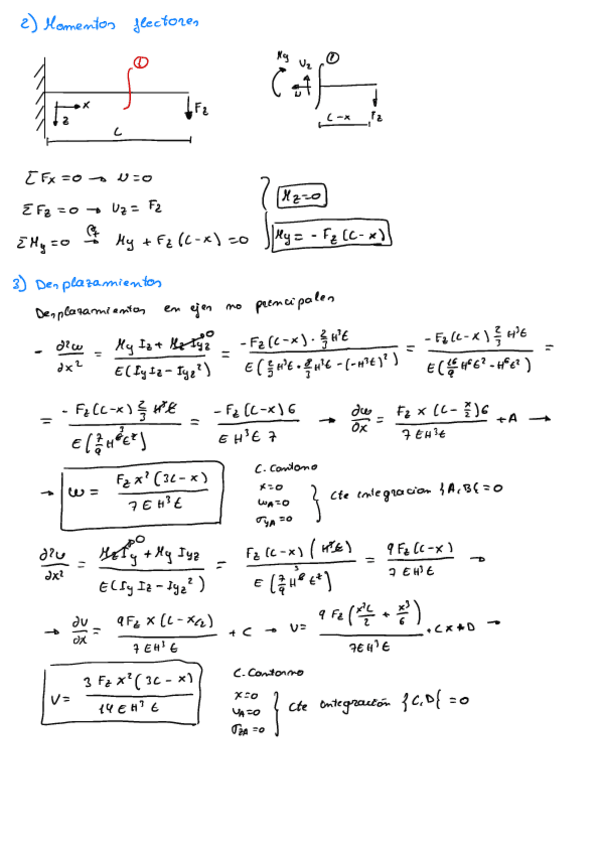 2) Momentos flectores
①
x
z
Fz
L
My
Uz
N
①
L-x
Fz
ΣFx = 0 → N = 0
ΣFz = 0 → Uz = Fz
ΣMy = 0 → My + Fz (L-x) = 0
Mz = 0
My = - Fz (L-x)
3) Desplazamientos
Desplazamientos en ejes no principales
- ∂²w/∂x² = (My Iz + Mz Iyz)/(E(Iy Iz - Iyz²)) = (-Fz (L-x) · 2/3 H³t)/(E(2/3 H³t · 8/3 H³t - (-H³t)²)) = (-Fz (L-x) 2/3 H³t)/(E(16/9 H⁶t² - H⁶t²)) =
= (-Fz (L-x) 2/3 H³t)/(E(7/9 H⁶t²)) = (-Fz (L-x) 6)/(E H³t 7) → ∂w/∂x = (Fz x (L - x/2) 6)/(7 E H³ t) + A →
→ w = (Fz x² (3L-x))/(7 E H³ t)
C. Contorno
x=0
wA=0
σyA=0
cte integracion {A,B} = 0
∂²v/∂x² = (Mz Iy + My Iyz)/(E(Iy Iz - Iyz²)) = (Fz (L-x) (H³t))/(E[7/9 H⁶ t²]) = (9 Fz (L-x))/(7 E H³ t) →
→ ∂v/∂x = (9 Fz x (L - x/2))/(7 E H³ t) + C → v = (9 Fz (x²L/2 + x³/6))/(7 E H³ t) + Cx + D →
V = (3 Fz x² (3L - x))/(14 E H³ t)
C. Contorno
x=0
vA=0
σzA=0
cte integración {C,D} = 0